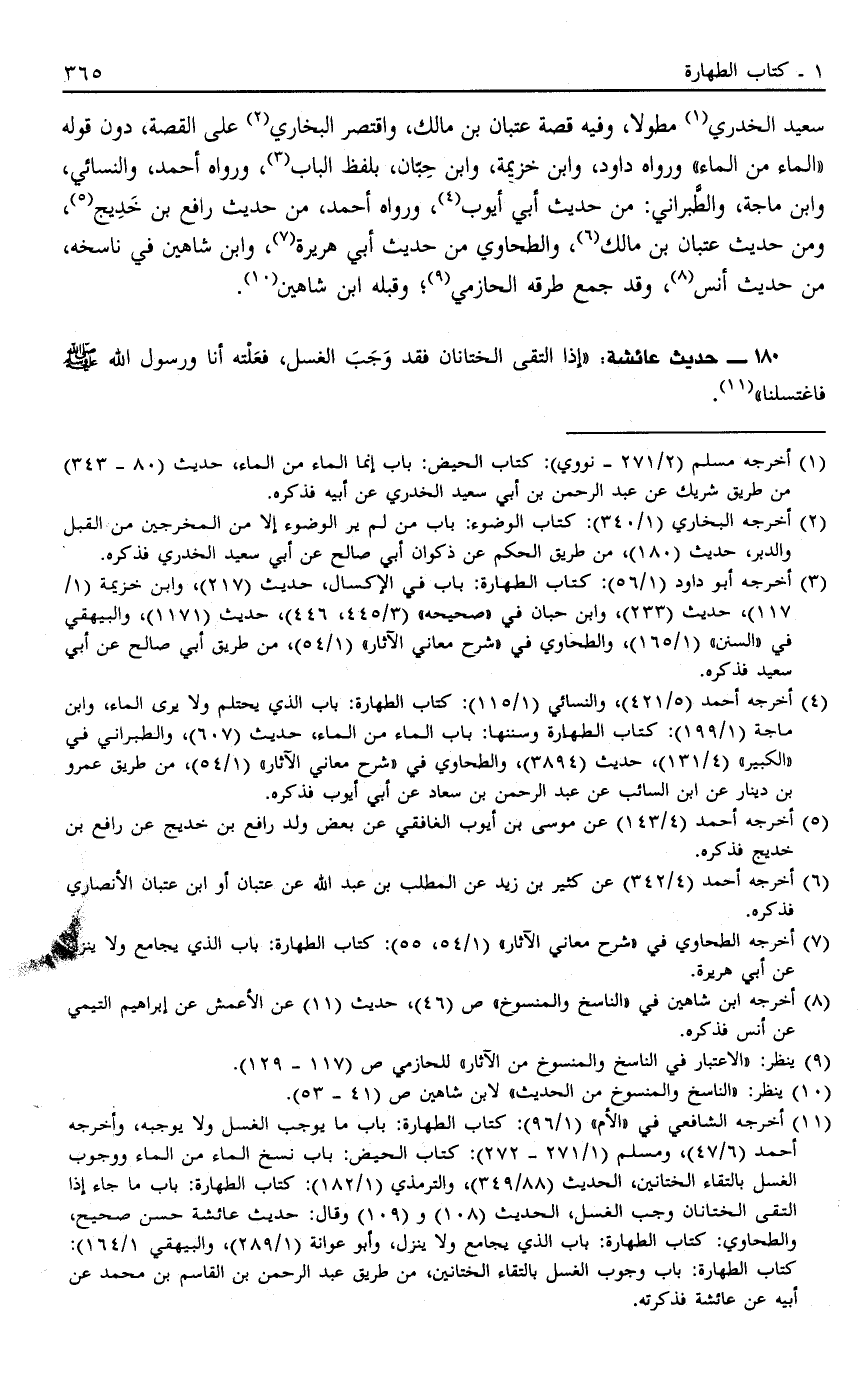 ١ ـ كتاب الطهارة
٣٦٥
سعيد الخدري(١) مطولا، وفيه قصة عتبان بن مالك، واقتصر البخاري(٢) على القصة، دون قوله
«الماء من الماء» ورواه داود، وابن خزيمة، وابن حِبّان، بلفظ الباب(٣)، ورواه أحمد، والنسائي،
وابن ماجة، والطَّبراني: من حديث أبي أيوب(٤)، ورواه أحمد، من حديث رافع بن خَدِيج(٥)،
ومن حديث عتبان بن مالك(٦)، والطحاوي من حديث أبي هريرة(٧)، وابن شاهين في ناسخه،
من حديث أنس(٨)، وقد جمع طرقه الحازمي(٩)؛ وقبله ابن شاهين(١٠).
١٨٠ ـ حديث عائشة: «إذا التقى الختانان فقد وَجَبَ الغسل، فعَلْته أنا ورسول الله ﷺ
فاغتسلنا»(١١).
(١) أخرجه مسلم (٢٧١/٢ ـ نووي): كتاب الحيض: باب إنما الماء من الماء، حديث (٨٠ ـ ٣٤٣)
من طريق شريك عن عبد الرحمن بن أبي سعيد الخدري عن أبيه فذكره.
(٢) أخرجه البخاري (٣٤٠/١): كتاب الوضوء: باب من لم ير الوضوء إلا من المخرجين من القبل
والدبر، حديث (١٨٠)، من طريق الحكم عن ذكوان أبي صالح عن أبي سعيد الخدري فذكره.
(٣) أخرجه أبو داود (٥٦/١): كتاب الطهارة: باب في الإكسال، حديث (٢١٧)، وابن خزيمة (١/
١١٧)، حديث (٢٣٣)، وابن حبان في «صحيحه» (٤٤٥/٣، ٤٤٦)، حديث (١١٧١)، والبيهقي
في «السنن» (١٦٥/١)، والطحاوي في «شرح معاني الآثار» (٥٤/١)، من طريق أبي صالح عن أبي
سعيد فذكره.
(٤) أخرجه أحمد (٤٢١/٥)، والنسائي (١١٥/١): كتاب الطهارة: باب الذي يحتلم ولا يرى الماء، وابن
ماجة (١٩٩/١): كتاب الطهارة وسننها: باب الماء من الماء، حديث (٦٠٧)، والطبراني في
«الكبير» (١٣١/٤)، حديث (٣٨٩٤)، والطحاوي في «شرح معاني الآثار» (٥٤/١)، من طريق عمرو
بن دينار عن ابن السائب عن عبد الرحمن بن سعاد عن أبي أيوب فذكره.
(٥) أخرجه أحمد (١٤٣/٤) عن موسى بن أيوب الغافقي عن بعض ولد رافع بن خديج عن رافع بن
خديج فذكره.
(٦) أخرجه أحمد (٣٤٢/٤) عن كثير بن زيد عن المطلب بن عبد الله عن عتبان أو ابن عتبان الأنصاري
فذكره.
(٧) أخرجه الطحاوي في «شرح معاني الآثار» (٥٤/١، ٥٥): كتاب الطهارة: باب الذي يجامع ولا ينزل
عن أبي هريرة.
(٨) أخرجه ابن شاهين في «الناسخ والمنسوخ» ص (٤٦)، حديث (١١) عن الأعمش عن إبراهيم التيمي
عن أنس فذكره.
(٩) ينظر: «الاعتبار في الناسخ والمنسوخ من الآثار» للحازمي ص (١١٧ ـ ١٢٩).
(١٠) ينظر: «الناسخ والمنسوخ من الحديث» لابن شاهين ص (٤١ ـ ٥٣).
(١١) أخرجه الشافعي في «الأم» (٩٦/١): كتاب الطهارة: باب ما يوجب الغسل ولا يوجبه، وأخرجه
أحمد (٤٧/٦)، ومسلم (٢٧١/١ ـ ٢٧٢): كتاب الحيض: باب نسخ الماء من الماء ووجوب
الغسل بالتقاء الختانين، الحديث (٣٤٩/٨٨)، والترمذي (١٨٢/١): كتاب الطهارة: باب ما جاء إذا
التقى الختانان وجب الغسل، الحديث (١٠٨) و (١٠٩) وقال: حديث عائشة حسن صحيح،
والطحاوي: كتاب الطهارة: باب الذي يجامع ولا ينزل، وأبو عوانة (٢٨٩/١)، والبيهقي ١٦٤/١):
كتاب الطهارة: باب وجوب الغسل بالتقاء الختانين، من طريق عبد الرحمن بن القاسم بن محمد عن
أبيه عن عائشة فذكرته.